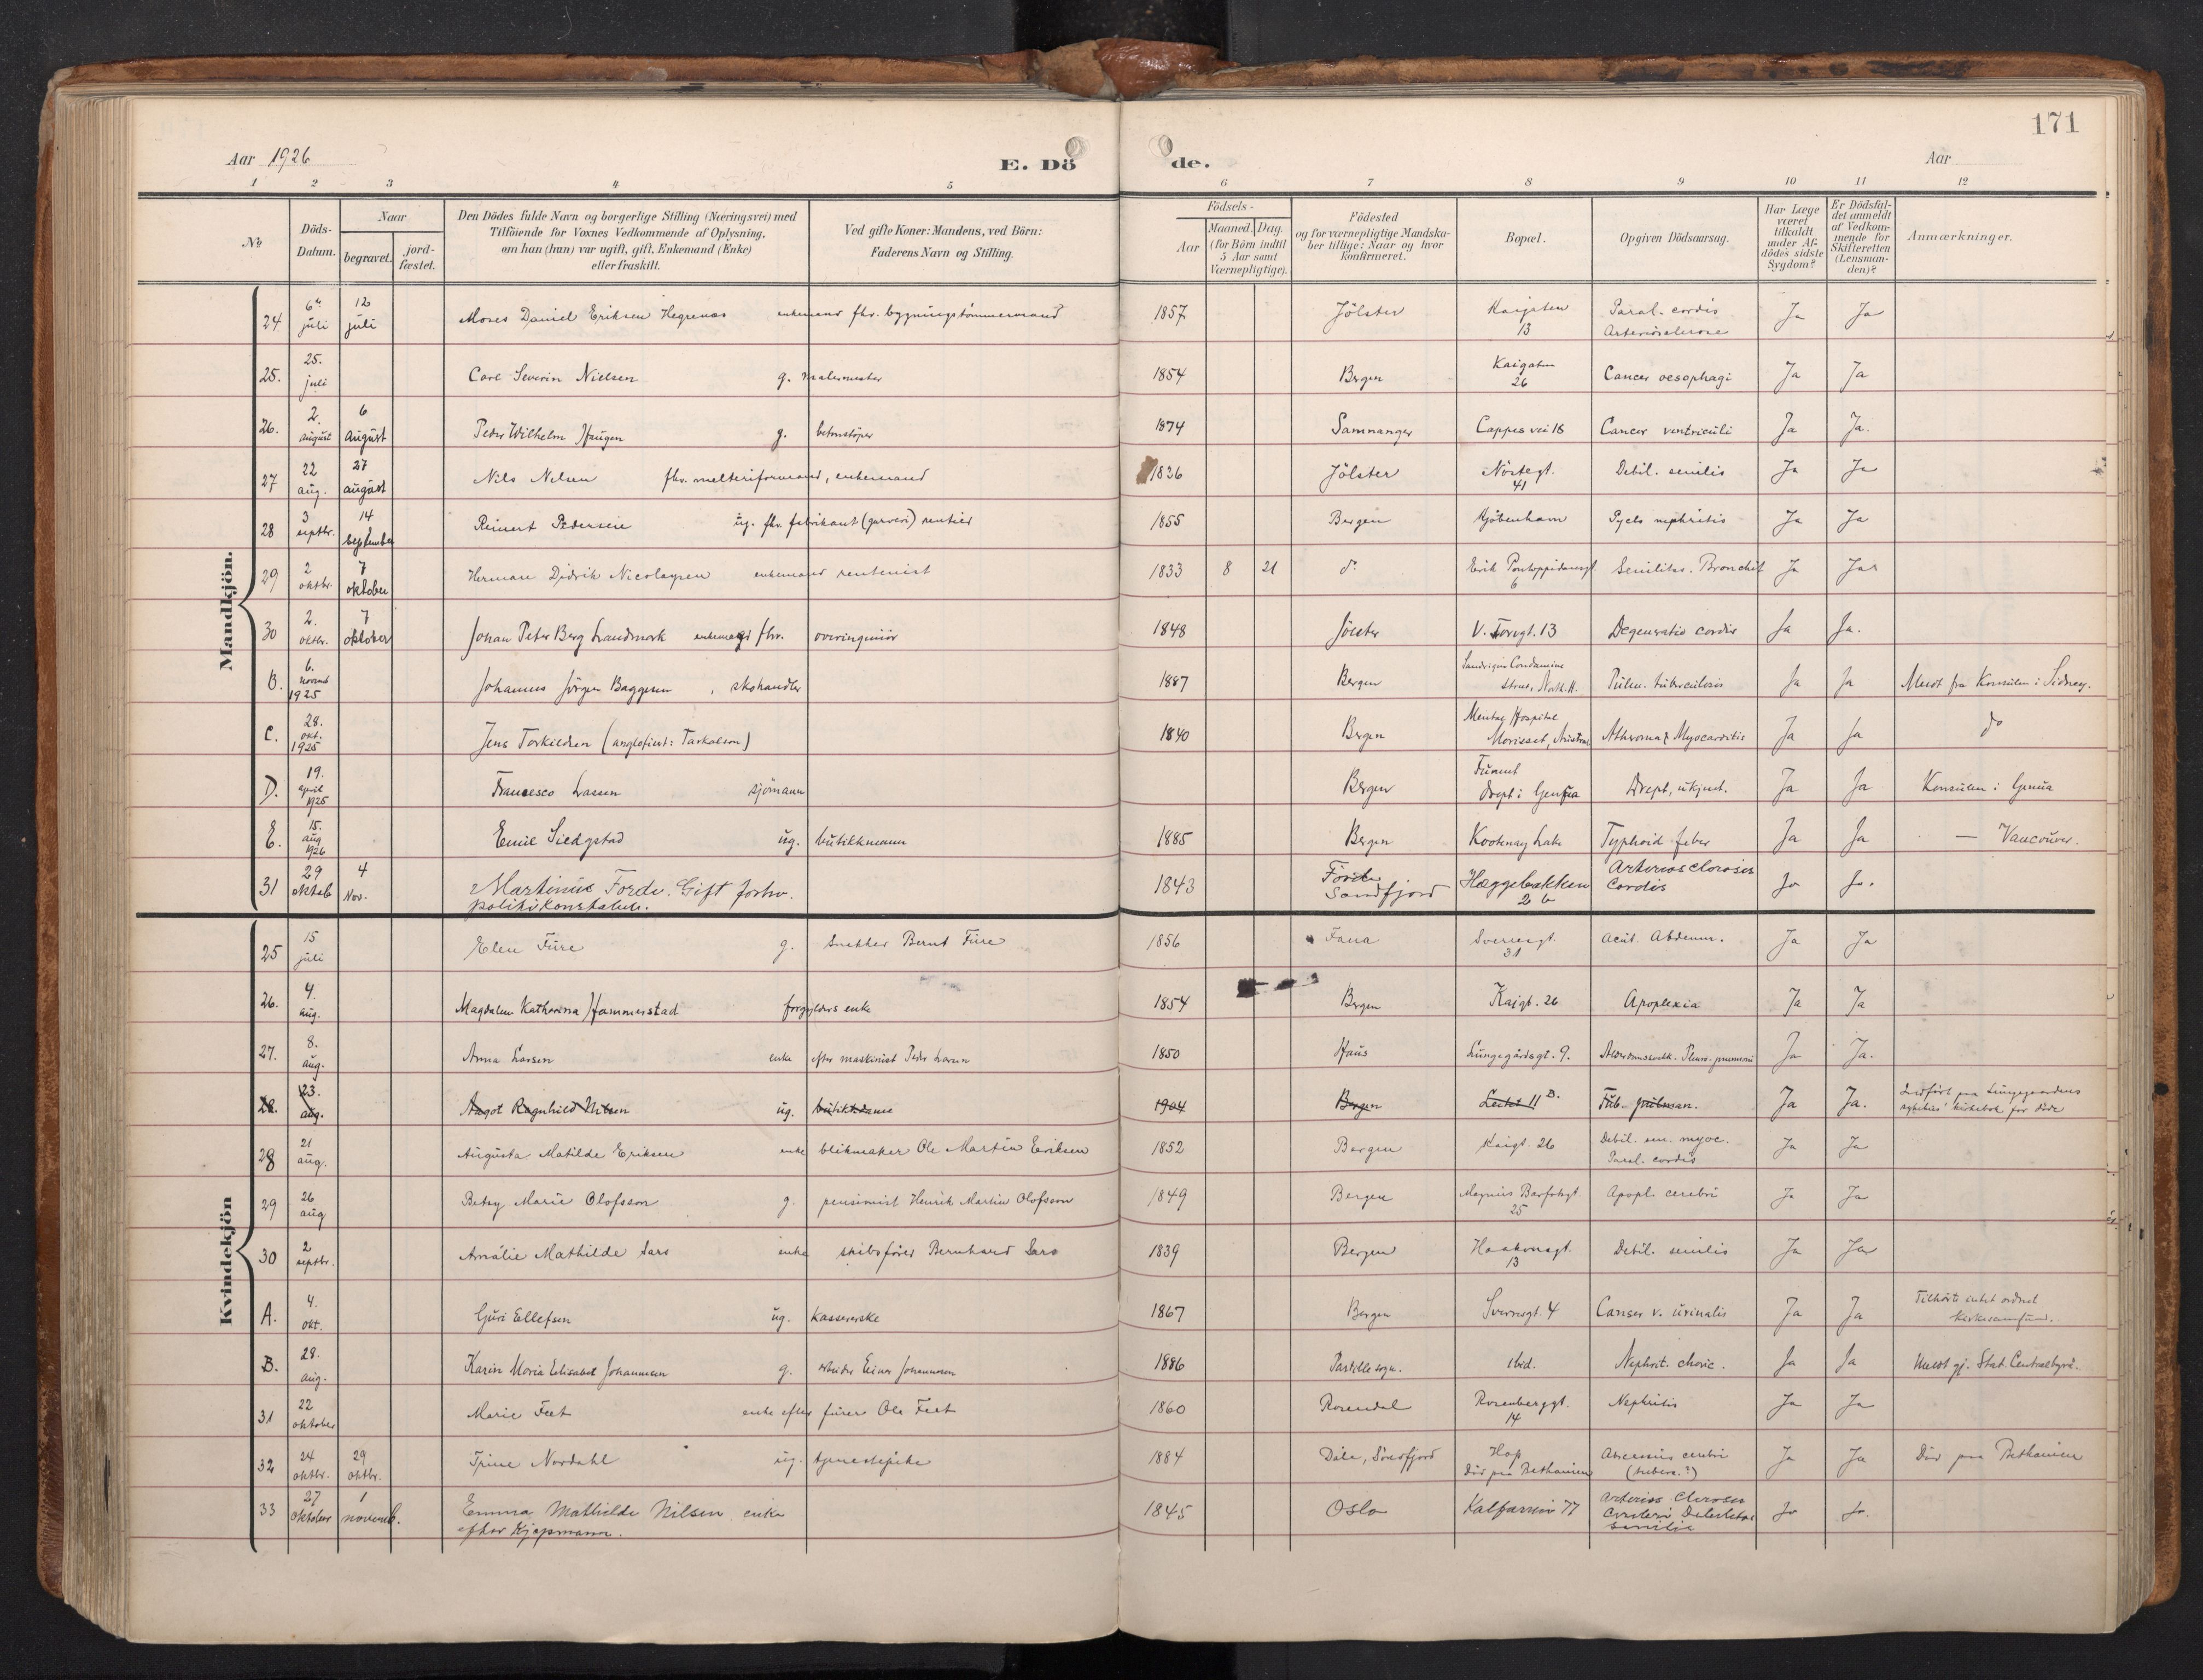 171
Aar 1926
E. Dö
de.
Aar
1 2 3 4 5 6 7 8 9 10 11 12
No
Döds-Datum.
Naar
begravet.
jord-fæstet.
Den Dödes fulde Navn og borgerlige Stilling (Næringsvei) med
Tilföiende for Voxnes Vedkommende af Oplysning,
om han (hun) var ugift, gift, Enkemand (Enke)
eller fraskilt.
Ved gifte Koner: Mandens, ved Börn:
Faderens Navn og Stilling.
Födsels-
Aar
Maaned. Dag.
(for Börn indtil
5 Aar samt
Værnepligtige).
Födested
og for værnepligtige Mandska-
ber tillige: Naar og hvor
konfirmeret.
Bopæl.
Opgiven Dödsaarsag.
Har Læge
været
tilkaldt
under Af-
dödes sidste
Sygdom?
Er Dödsfal-
det anmeldt
af Vedkom-
mende for
Skifteretten
(Lensman-
den)?
Anmærkninger.
Mandkjön.
24 6te juli 12 juli Moses Daniel Eriksen Hegrenæs enkemand fhv. bygningstømmermand 1857 Jölster Kaigaten 13 Paral. cordis Arteriosclerose Ja Ja
25. 25. juli Carl Severin Nielsen g. malermester 1854 Bergen Kaigaten 26 Cancer oesophagi Ja Ja
26. 2. august 6 August Peder Wilhelm Haugen g. betonstøper 1874 Samnanger Cappes vei 18 Cancer ventriculi Ja Ja.
27 22 aug. 27 august Nils Nelsen fhv. melteriformand, enkemand 1836 Jölster Nöstegt. 41 Debil. senilis Ja Ja
28 3 septbr. 14 September Reinert Pedersen ug. fhv. fabrikant (garveri) rentier 1855 Bergen Kjöbenhavn Pyelo nephritis Ja Ja
29 2 oktbr. 7 oktober Herman Didrik Nicolaysen enkemand rentenist 1833 8 21 do Erik Pontoppidansgt. 6 Senilitas. Bronchit Ja Ja
30 2. oktbr. 7 oktober Johan Peter Berg Landmark enkemand fhv. overingeniör 1848 Jölster V. Torvgt. 13 Degeneratio cordis Ja Ja.
B. 6. novemb 1925 Johannes Jörgen Baggesen, skohandler 1887 Bergen Pulm. tuberculosis Ja Ja Meldt fra Konsulen i Sidney.
C. 28. okt. 1925 Jens Torkildsen (anglofiert: Tarkalson) 1840 Bergen Mental Hospital Morisset, Atheroma & Myocarditis Ja Ja do
D. 19. april 1925 Francesco Lassen sjömann Bergen Funnet drept i Genua Drept, ukjent. Ja Ja Konsulen i Genua
E. 15. aug 1926 Emil Siedgstad ug. butikkmann 1885 Bergen Kootenay Lake Typhoid feber Ja Ja — Vancouver.
31 29 oktob 4 Nov. Martinus Förde. Gift forhv. politikonstabel. 1843 Förde Söndfjord Hæggebakken 2 b Arteriosclerosis Cordis Ja Ja.
Kvindekjön
25 15 juli Elen Fure g. Snekker Bernt Fure 1856 Fana Sverresgt. 31 Acut. Abdenm. Ja Ja
26. 4. aug. Magdalene Katharina Hammerstad forgylders enke 1854 Bergen Kaigt. 26 Apoplexia Ja Ja
27. 8. aug. Anna Larsen enke efter maskinist Peder Larsen 1850 Haus Lungegårdsgt. 9. Ja Ja.
28. 23. aug. Aagot Ragnhild Nilsen ug. butikkdame 1904 Bergen 11 B. Tub. pulmon. Ja Ja. Indfört paa Lungegaardens sykehus' kirkebok for döde
28 21 aug. Augusta Matilde Eriksen enke blikmaker Ole Martin Eriksen 1852 Bergen Kaigt. 26 Debil. sen. myoc. Paral. cordis Ja Ja
29 26 aug Betsy Marie Olofsson g. pensionist Henrik Martin Olofsson 1849 Bergen Magnus Barfotsgt 25 Apopl. cerebri Ja Ja
30 2 septbr. Amalie Mathilde Sars enke skibsförer Bernhard Sars 1839 Bergen Haakonsgt. 13 Debil. senilis Ja Ja
A. 4. okt. Guri Ellefsen ug. kassererske 1867 Bergen Sverresgt. 4 Cancer v. urinalis Ja Ja Tilhörte intet ordnet kirkesamfund.
B. 28. aug. Karin Maria Elisabet Johannesen g. arbeider Einar Johannesen 1886 ibid. Nephrit. chronic. Ja Ja Meldt gj. Stat. Centralbyrå.
31 22 oktober Marie Feet enke efter furer Ole Feet 1860 Rosendal Rosenberggt. 14 Nephritis Ja Ja
32 24 oktbr. 29 oktbr. Trine Nordahl ug. tjenestepike 1884 Dale, Söndfjord Hop Död paa Bethanien Abscessus cerebri (tuberc.?) Ja Ja Död paa Bethanien
33 27 oktober 1 novemb. Emma Mathilde Nilsen enke efter Kjøpmann. 1845 Oslo Kalfarvei 77 Arterios Clerosis cerebri Debilitas senilis Ja Ja.